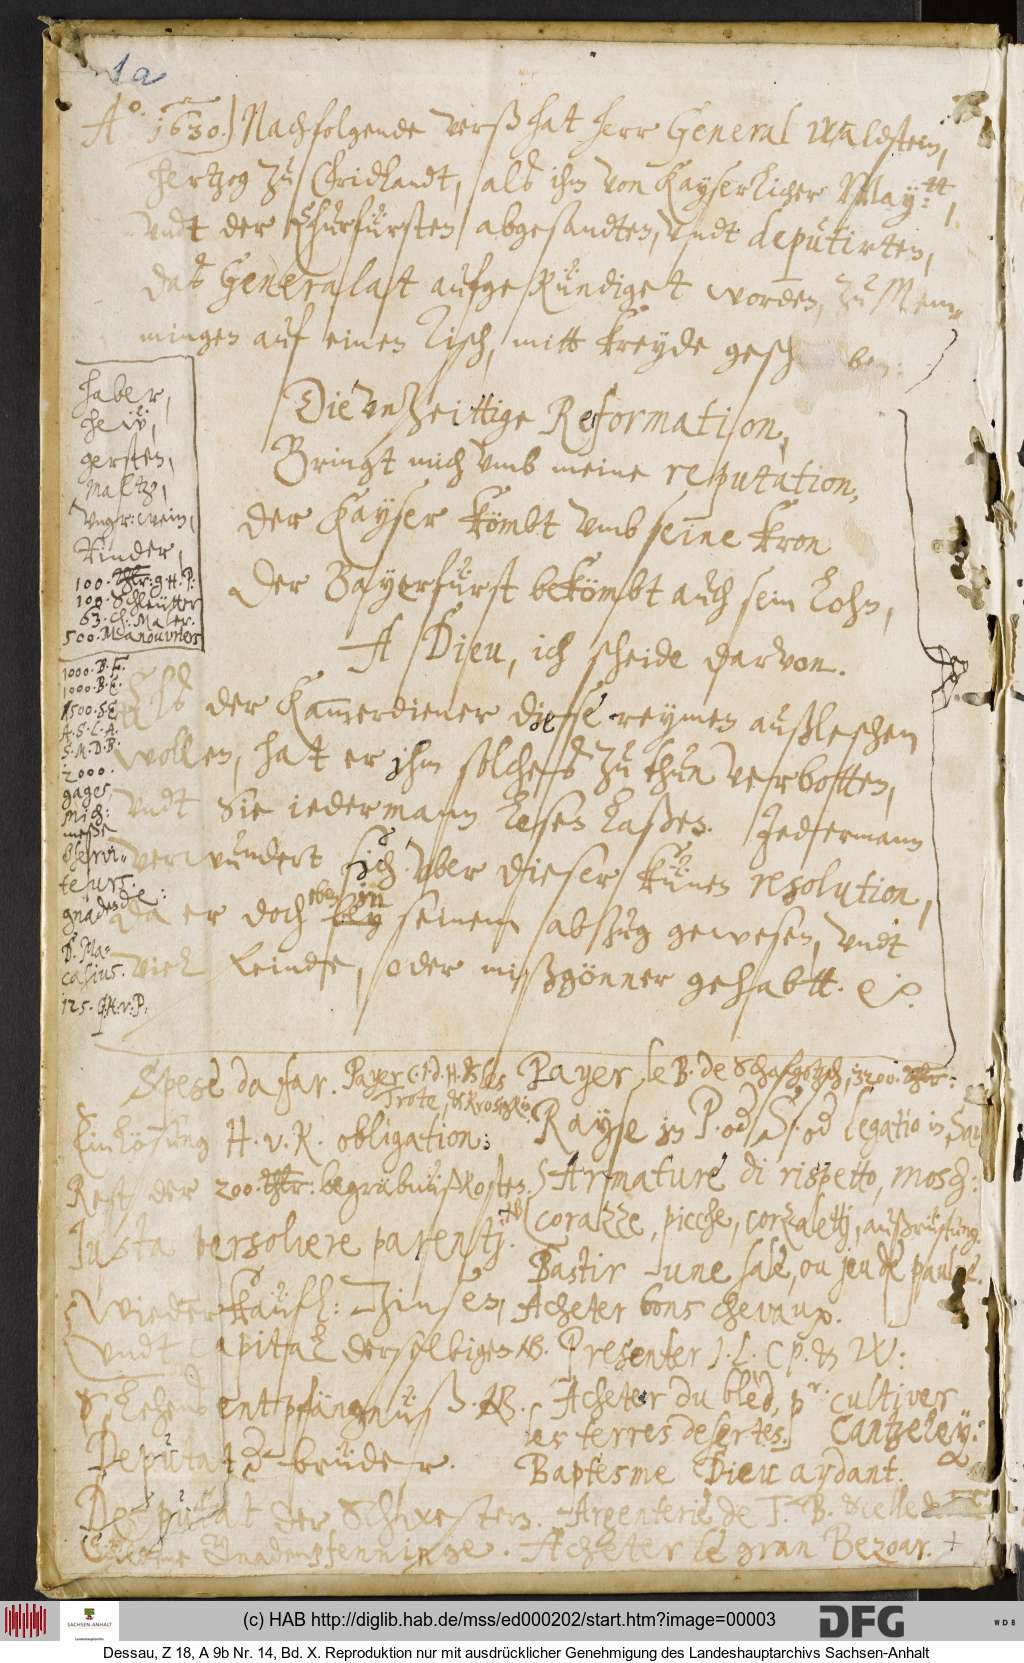 1a
A° 1630.) Nachfolgende verß hat herr General Waldstein,
hertzog zu Fridlandt, als ihm von Kayserlicher May:tt,
vndt der Churfürsten abgesandten, vndt deputirten,
das Generalat aufgekündiget worden, zu Mem-
mingen auf einen Tisch, mitt Kreyde gesch ben:
Die vnzeittige Reformation,
Bringt mich vmb meine reputation,
Der Kayser kömbt vmb seine Kron
Der Bayerfürst bekömbt auch sein Lohn,
A Dieu, ich scheide darvon.
Als der Kammerdiener diese reymen außleschen
wollen, hat er ihm solches zu thun verbotten,
vndt Sie iedermann lesen laßen. Jedermann
verwundert sich vber dieser künen resolution,
da er doch eben in bey seinem abzug gewesen, vndt
viel feinde, oder mißgönner gehabtt. &c.
haber,
heü,
gersten,
Maltz,
Vngr: wein,
Rinder,
100. Thlr: g H. P:
100. Schnitter
63. Ch: Maler.
500. Manouvriers
1000. B. E.
1000. B. E.
1500. S. E.
A. S. C. A.
S. M. D. B.
2000.
gages
Mich:
meße
Servi-
teurs.
gnädes de:
D. Ma-
casius.
125. J. H. v: P.
Spese da far. Payer C. I. d. H. & les
Trote, & Krosigk
Einlösung H. v. K. obligation:
Rest der 200. Thlr: begräbnüßkosten.
Justa persolvere parentj. NB
Wiederkaüfl: Zinsen,
vndt Capital derselbigen NB.
& Lehens entpfängnüß. NB.
Deputat d. brüder.
Deputat der Schwestern.
Gnadenpfenninge.
Payer le B. de Schafgotzsch, 3200. Thlr:
Rayse in P. od S. od legatio in Sa
Armature di rispetto, mosch:
corazze, picche, corzaletti, außrüstung.
Bastir une sale, ou jeu de paulme.
Acheter bons chevaux.
Presenter J. L. C P. & W:
Acheter du bled, pr. cultiver
les terres desertes. Cantzeley:
Baptesme Dieu aydant.
Argenterie de T. B. & celle de
Acheter le gran Bezoar. +
(c) HAB http://diglib.hab.de/mss/ed000202/start.htm?image=00003
SACHSEN-ANHALT
DFG
WDB
Dessau, Z 18, A 9b Nr. 14, Bd. X. Reproduktion nur mit ausdrücklicher Genehmigung des Landeshauptarchivs Sachsen-Anhalt